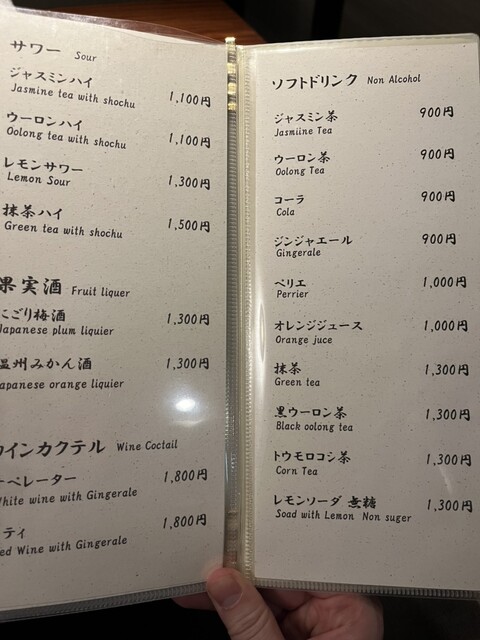 サワー Sour
ジャスミンハイ
Jasmine tea with shochu 1,100円
ウーロンハイ
Oolong tea with shochu 1,100円
レモンサワー
Lemon Sour 1,300円
抹茶ハイ
Green tea with shochu 1,500円
果実酒 Fruit liquer
にごり梅酒 1,300円
Japanese plum liquier
温州みかん酒 1,300円
Japanese orange liquier
インカクテル Wine Coctail
ーペレーター 1,800円
White wine with Gingerale
ティ 1,800円
ed Wine with Gingerale
ソフトドリンク Non Alcohol
ジャスミン茶 900円
Jasmiine Tea
ウーロン茶 900円
Oolong Tea
コーラ 900円
Cola
ジンジャエール 900円
Gingerale
ペリエ 1,000円
Perrier
オレンジジュース 1,000円
Orange juce
抹茶 1,300円
Green tea
黒ウーロン茶 1,300円
Black oolong tea
トウモロコシ茶 1,300円
Corn Tea
レモンソーダ 無糖 1,300円
Soad with Lemon Non suger